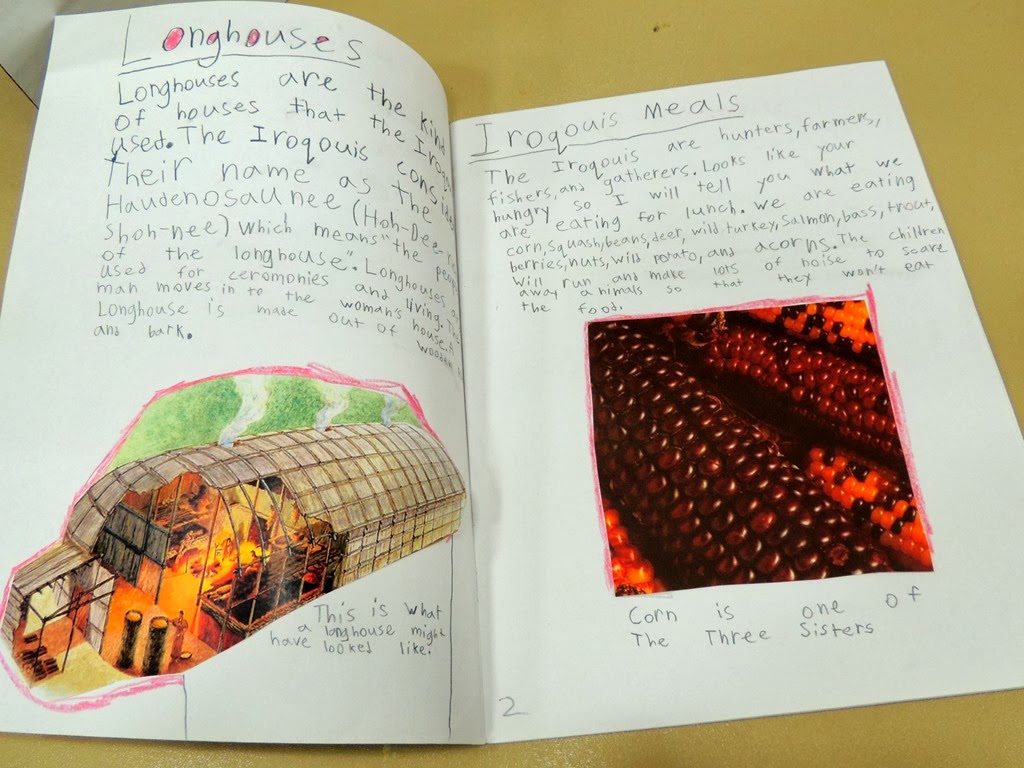 Longhouses
Longhouses are the kind
of houses that the
used. The Iroqouis
Their name as The
Haudenosaunee (Hoh-Dee-
Shoh-nee) which means "the
of the longhouse". Longhouses
used for ceremonies and living. The
man moves in to the woman's house. A
Longhouse is made out of wooden
and bark.
This is what
a longhouse might
have looked like.
Iroqouis Meals
The Iroqouis are hunters, farmers,
fishers, and gatherers. Looks like your
hungry so I will tell you what we
are eating for lunch. We are eating
corn, squash, beans, deer, wild turkey, salmon, bass, trout,
berries, nuts, wild potato, and acorns. The children
will run and make lots of noise to scare
away animals so that they won't eat
the food.
Corn is one of
The Three Sisters
2